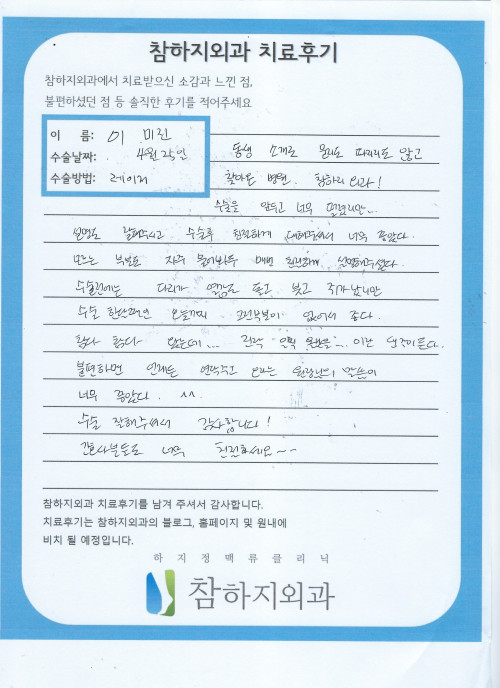 참하지외과 치료후기
참하지외과에서 치료받으신 소감과 느낀 점,
불편하셨던 점 등 솔직한 후기를 적어주세요
이 름: 이 미진
수술날짜: 4월 25일
수술방법: 레이저
동생 소개로 따지지도 않고
찾아온 병원. 참하지외과!
수술을 앞두고 너무 떨렸지만...
설명도 잘해주시고 수술후 친절하게 대해주셔서 너무 좋았다.
모르는 부분도 자주 물어봐도 매번 친절하게 설명해주셨다.
수술전에는 다리가 붓고 쥐가 났지만
수술 한달째인 오늘까지 그런부분이 없어서 좋다.
진작 이런 생각이든다.
불편하면 언제든 연락주고 오라는 원장님의 말씀이
너무 좋았다. ^^
수술 잘해주셔서 감사합니다!
간호사분들도 너무 친절하세요~~
참하지외과 치료후기를 남겨 주셔서 감사합니다.
치료후기는 참하지외과의 블로그, 홈페이지 및 원내에
비치 될 예정입니다.
하지정맥류클리닉
참하지외과